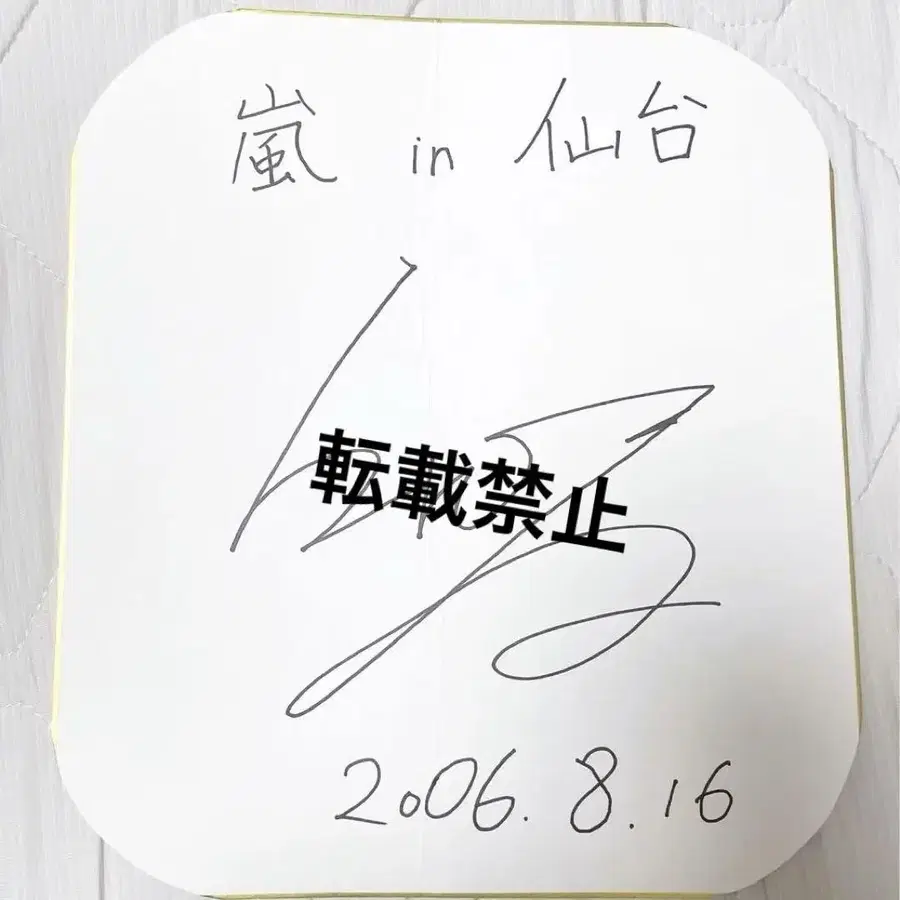 嵐 in 仙台
転載禁止
2006.8.16